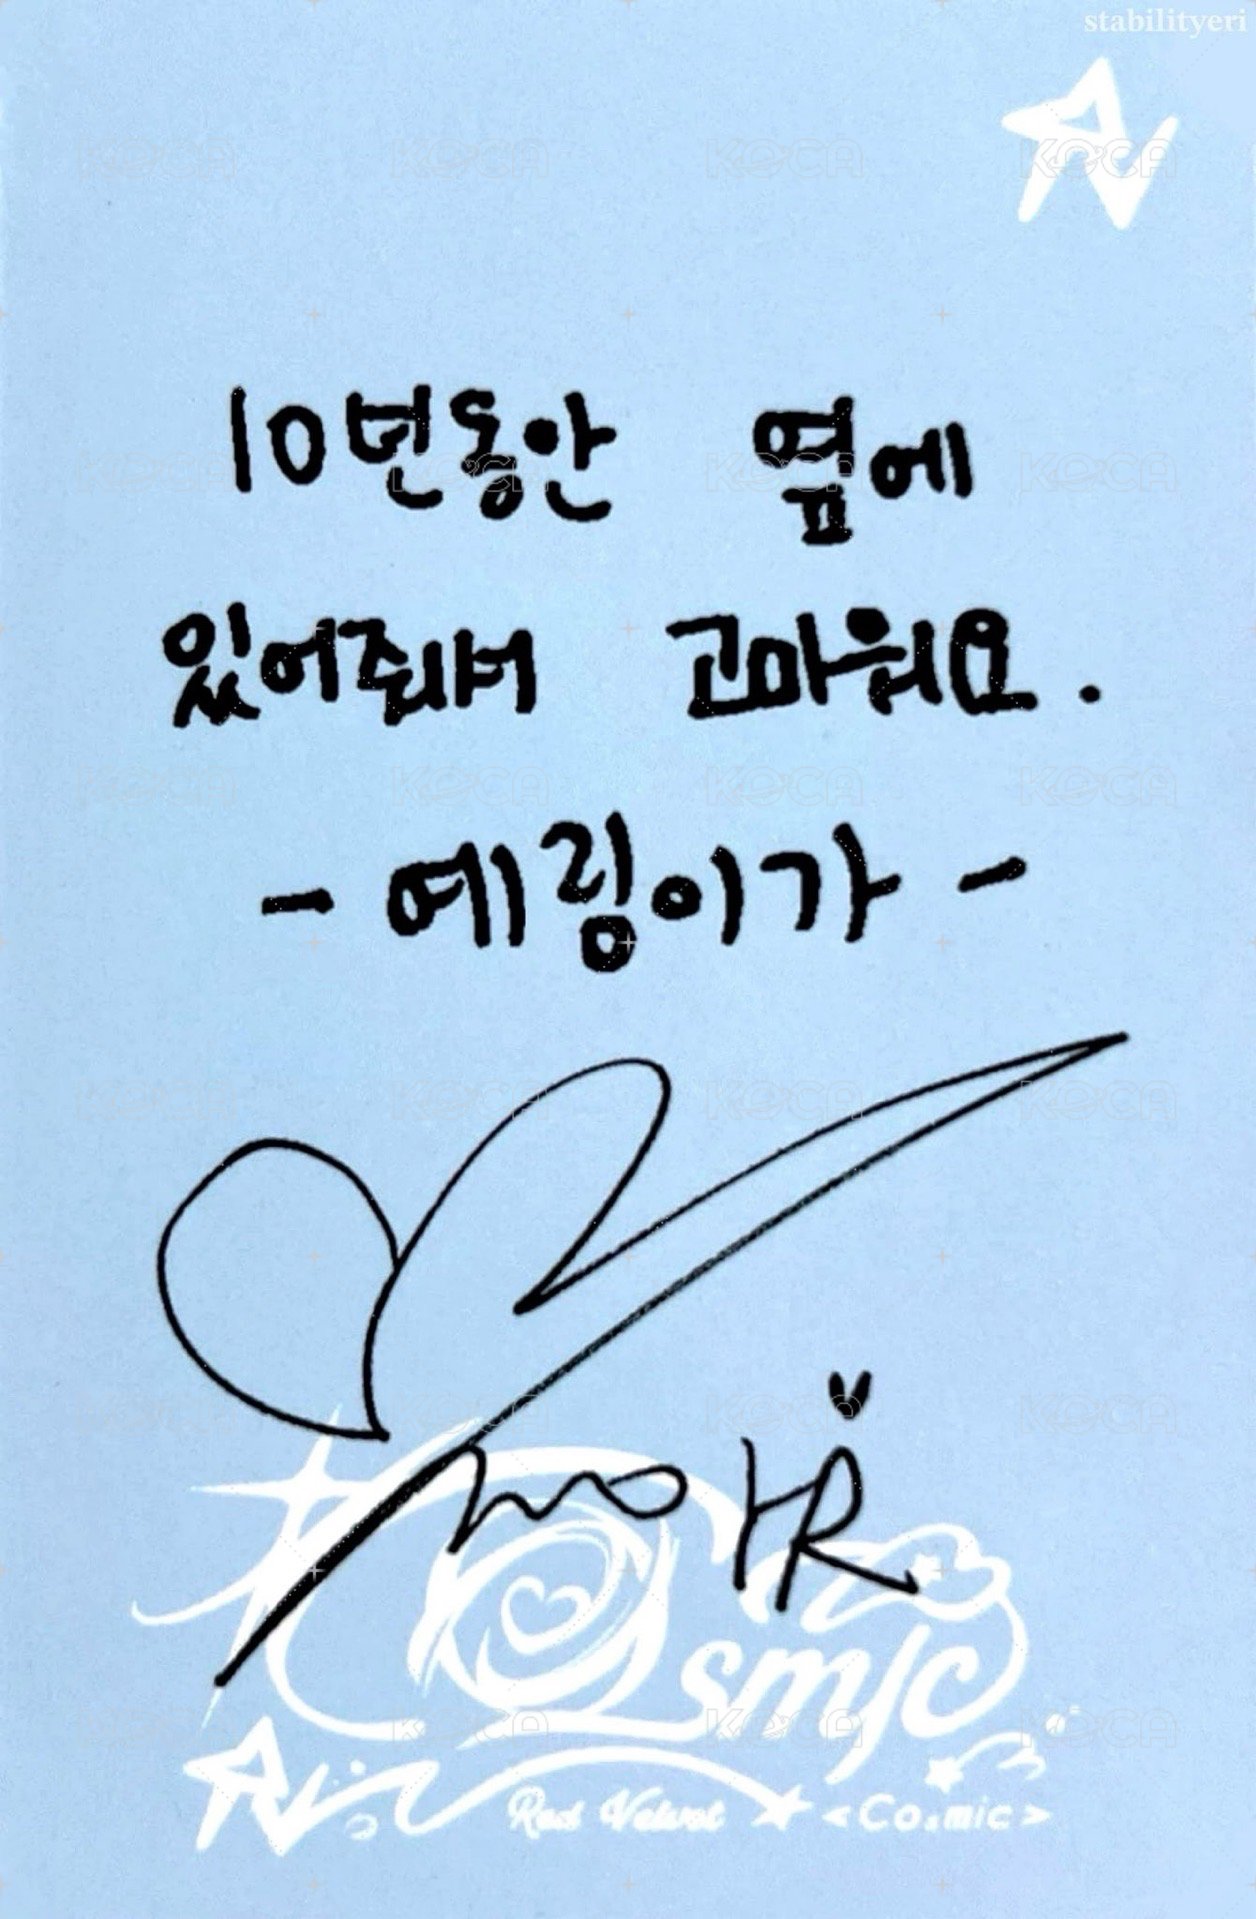 stabilityeri
RV
10년동안 옆에
있어줘서 고마워요.
- 예림이가 -
Cosmic
RV
Red Velvet ★ <Cosmic>
KOCA